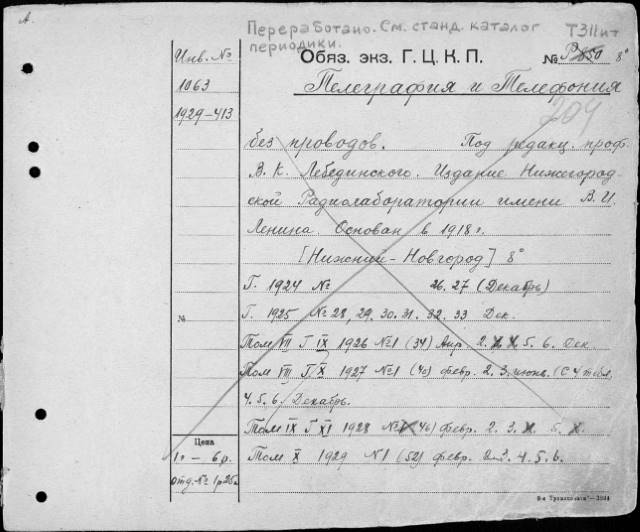 А.
Переработано. См. станд. каталог
периодики.
Т311ит
Инв. №
1063
1929-413
Обяз. экз. Г. Ц. К. П. № 8°
Телеграфия и Телефония
204
без проводов. Под редакц. проф.
В. К. Лебединского. Издание Нижегород-
ской Радиолаборатории имени В. И.
Ленина. Основан в 1918 г.
[Нижний-Новгород] 8°
Г. 1924 № 26. 27 (Декабрь)
№
Г. 1925 № 28, 29. 30. 31. 32. 33 Дек.
Том VII Г IX 1926 №1 (34) Апр. 2. 5. 6. Дек
Том VIII Г X 1927 №1 (40) февр. 2. 3. июнь. (С 4
4. 5. 6) Декабрь.
Том IX Г XI 1928 (46) февр. 2. 3. 5.
Том X 1929 №1 (52) февр. 3. 4. 5. 6.
Цена
1г - 6р.
отд. № 1р25к